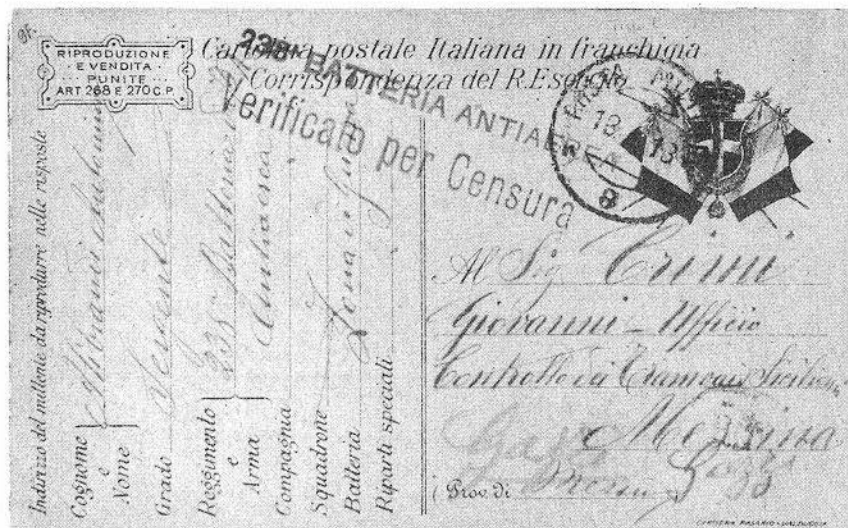 RIPRODUZIONE
E VENDITA
PUNITE
ART 268 E 270 C.P.
Cartolina postale Italiana in franchigia
Corrispondenza del R. Esercito
BATTERIA ANTIAEREA
Verificato per Censura
POSTA
18
8
Indirizzo del mittente da riprodurre nelle risposte
Cognome
e
Nome
Antonio
Grado
Sergente
Reggimento
e
Arma
235 Batteria
Antiaerea
Compagnia
Squadrone
Batteria
Zona di
Riparti speciali
Al Sig Crimi
Giovanni - Ufficio
Controllo dei Tramways Siciliani
Messina
Prov. di